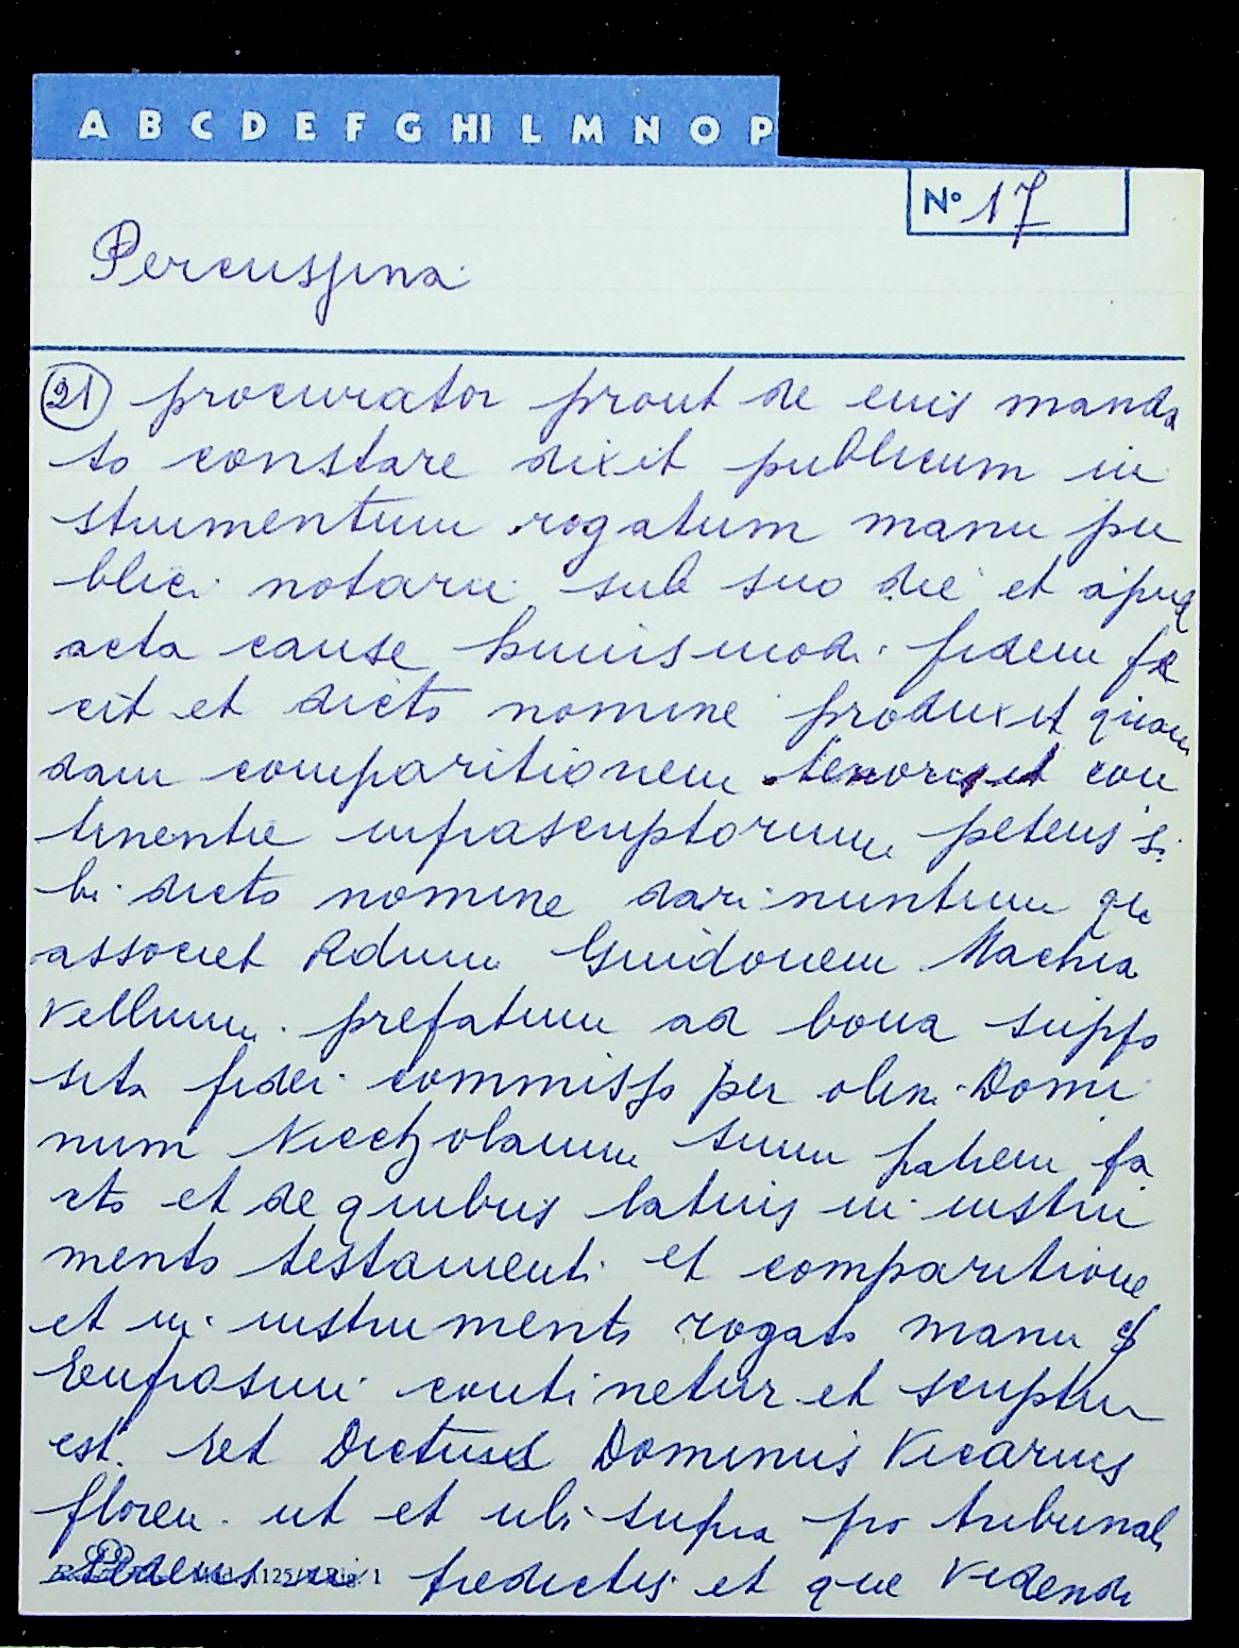 A B C D E F G HI L M N O P
N° 17
Percussina
21 procurator prout de euis manda
to constare dixit publicum in
strumentum rogatum manu pu
blici notarii sub suo die et apud
acta cause huiusmodi fidem fe
cit et dicto nomine produxit quan
dam comparitionem tenoris et con
tinentie infrascriptorum petens si
bi dicto nomine dari nuntium qu
associet Rdum Guidonem Machia
vellum prefatum ad bona suppo
sita fidei commisso per olim Domi
num Niccholaum suum patrem fa
cto et de quibus latius in instru
mento testamenti et comparitione
et in instrumento rogato manu
continetur et scriptum
est. Et Dictus Dominus Vicarius
floren. ut et ubi supra pro tribunali
sedens in predictis et que vidend